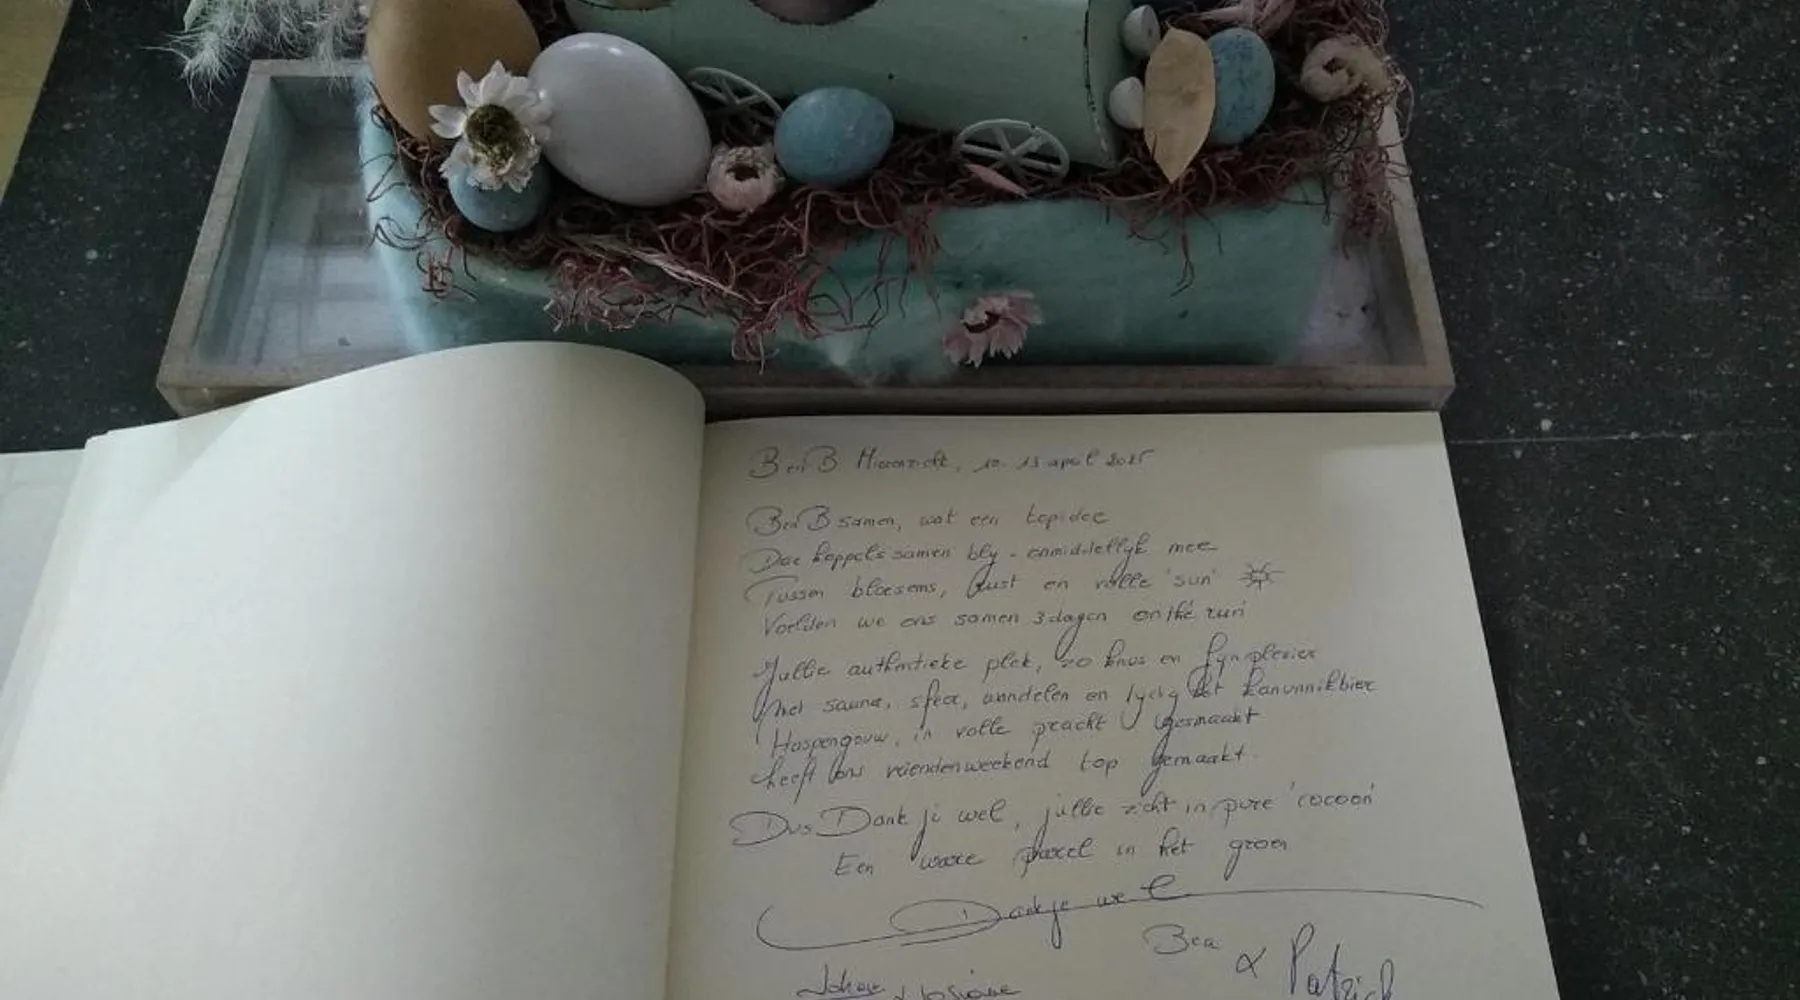 BenB Mierenzicht, 10-13 april 2025
BenB samen, wat een topidee
Dae koppels samen bly - onmiddellyk mee
Tussen bloesems, Rust en volle 'sun'
Voelden we ons samen 3 dagen on the run
Jullie authentieke plek, zo knus en fyn plezier
Met sauna, sfeer, wandelen en het kanunnikbier
Haspengouw, in volle pracht gesmaakt
heeft ons vriendenweekend top gemaakt.
Dus Dank je wel, jullie zicht in pure 'cocoon'
Een ware parel in het groen
Dankje wel
Bea
& Patrick
Johan &